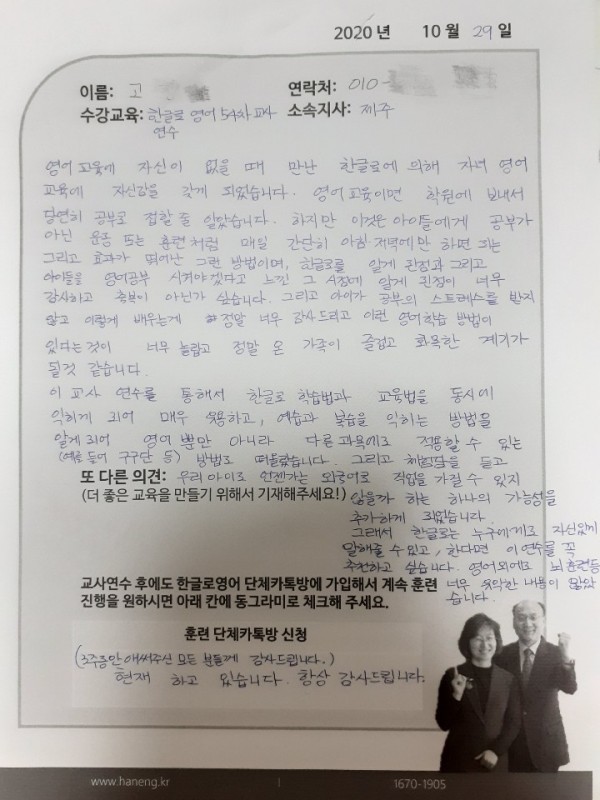 2020년 10월 29일
이름: 고
연락처: 010-
수강교육: 한글로 영어 54차 교사 연수
소속지사: 제주
영어 교육에 자신이 없을 때 만난 한글로에 의해 자녀 영어
교육에 자신감을 갖게 되었습니다. 영어 교육이면 학원에 보내서
당연히 공부로 접할 줄 알았습니다. 하지만 이것은 아이들에게 공부가
아닌 운동 또는 훈련처럼 매일 간단히 아침 저녁에만 하면 되는
그리고 효과가 뛰어난 그런 방법이며, 한글로를 알게 된점과 그리고
아이들을 영어공부 시켜야겠다고 느낀 그 시점에 알게 된점이 너무
감사하고 축복이 아닌가 싶습니다. 그리고 아이가 공부의 스트레스를 받지
않고 이렇게 배우는게 정말 너무 감사드리고 이런 영어학습 방법이
있다는것이 너무 놀랍고 정말 온 가족이 즐겁고 화목한 계기가
될것 같습니다.
이 교사 연수를 통해서 한글로 학습법과 교육법을 동시에
익히게 되어 매우 유용하고, 예습과 복습을 익히는 방법을
알게되어 영어 뿐만 아니라 다른 과목에도 적용할 수 있는
(예를 들어 구구단 등) 방법도 떠올랐습니다. 그리고 을 듣고
또 다른 의견: 우리 아이도 언젠가는 외국어로 직업을 가질 수 있지
(더 좋은 교육을 만들기 위해서 기재해주세요!) 않을까 하는 하나의 가능성을
추가하게 되었습니다.
그래서 한글로는 누구에게도 자신있게
말해줄 수 있고, 한다면 이 연수를 꼭
추천하고 싶습니다. 영어외에도 뇌훈련등
교사연수 후에도 한글로영어 단체카톡방에 가입해서 계속 훈련 너무 유익한 내용이 많았
진행을 원하시면 아래 칸에 동그라미로 체크해 주세요. 습니다.
훈련 단체카톡방 신청
(3주동안 애써주신 모든 분들께 감사드립니다.)
현재 하고 있습니다. 항상 감사드립니다.
www.haneng.kr | 1670-1905